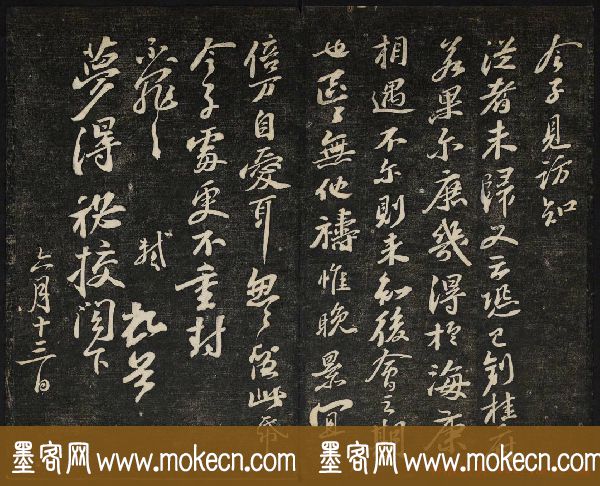 令子見訪知
從者未歸又云恐已到桂府
若果尔庶幾得於海康
相遇不尔則未知後會之期
也區〻無他禱惟晚景宜
倍万自愛耳匆〻留此帋
令子處更不重封
不罪〻 軾頓首
夢得秘校閣下
六月十三日
墨客网 www.mokecn.com 墨客网 www.mokecn.com